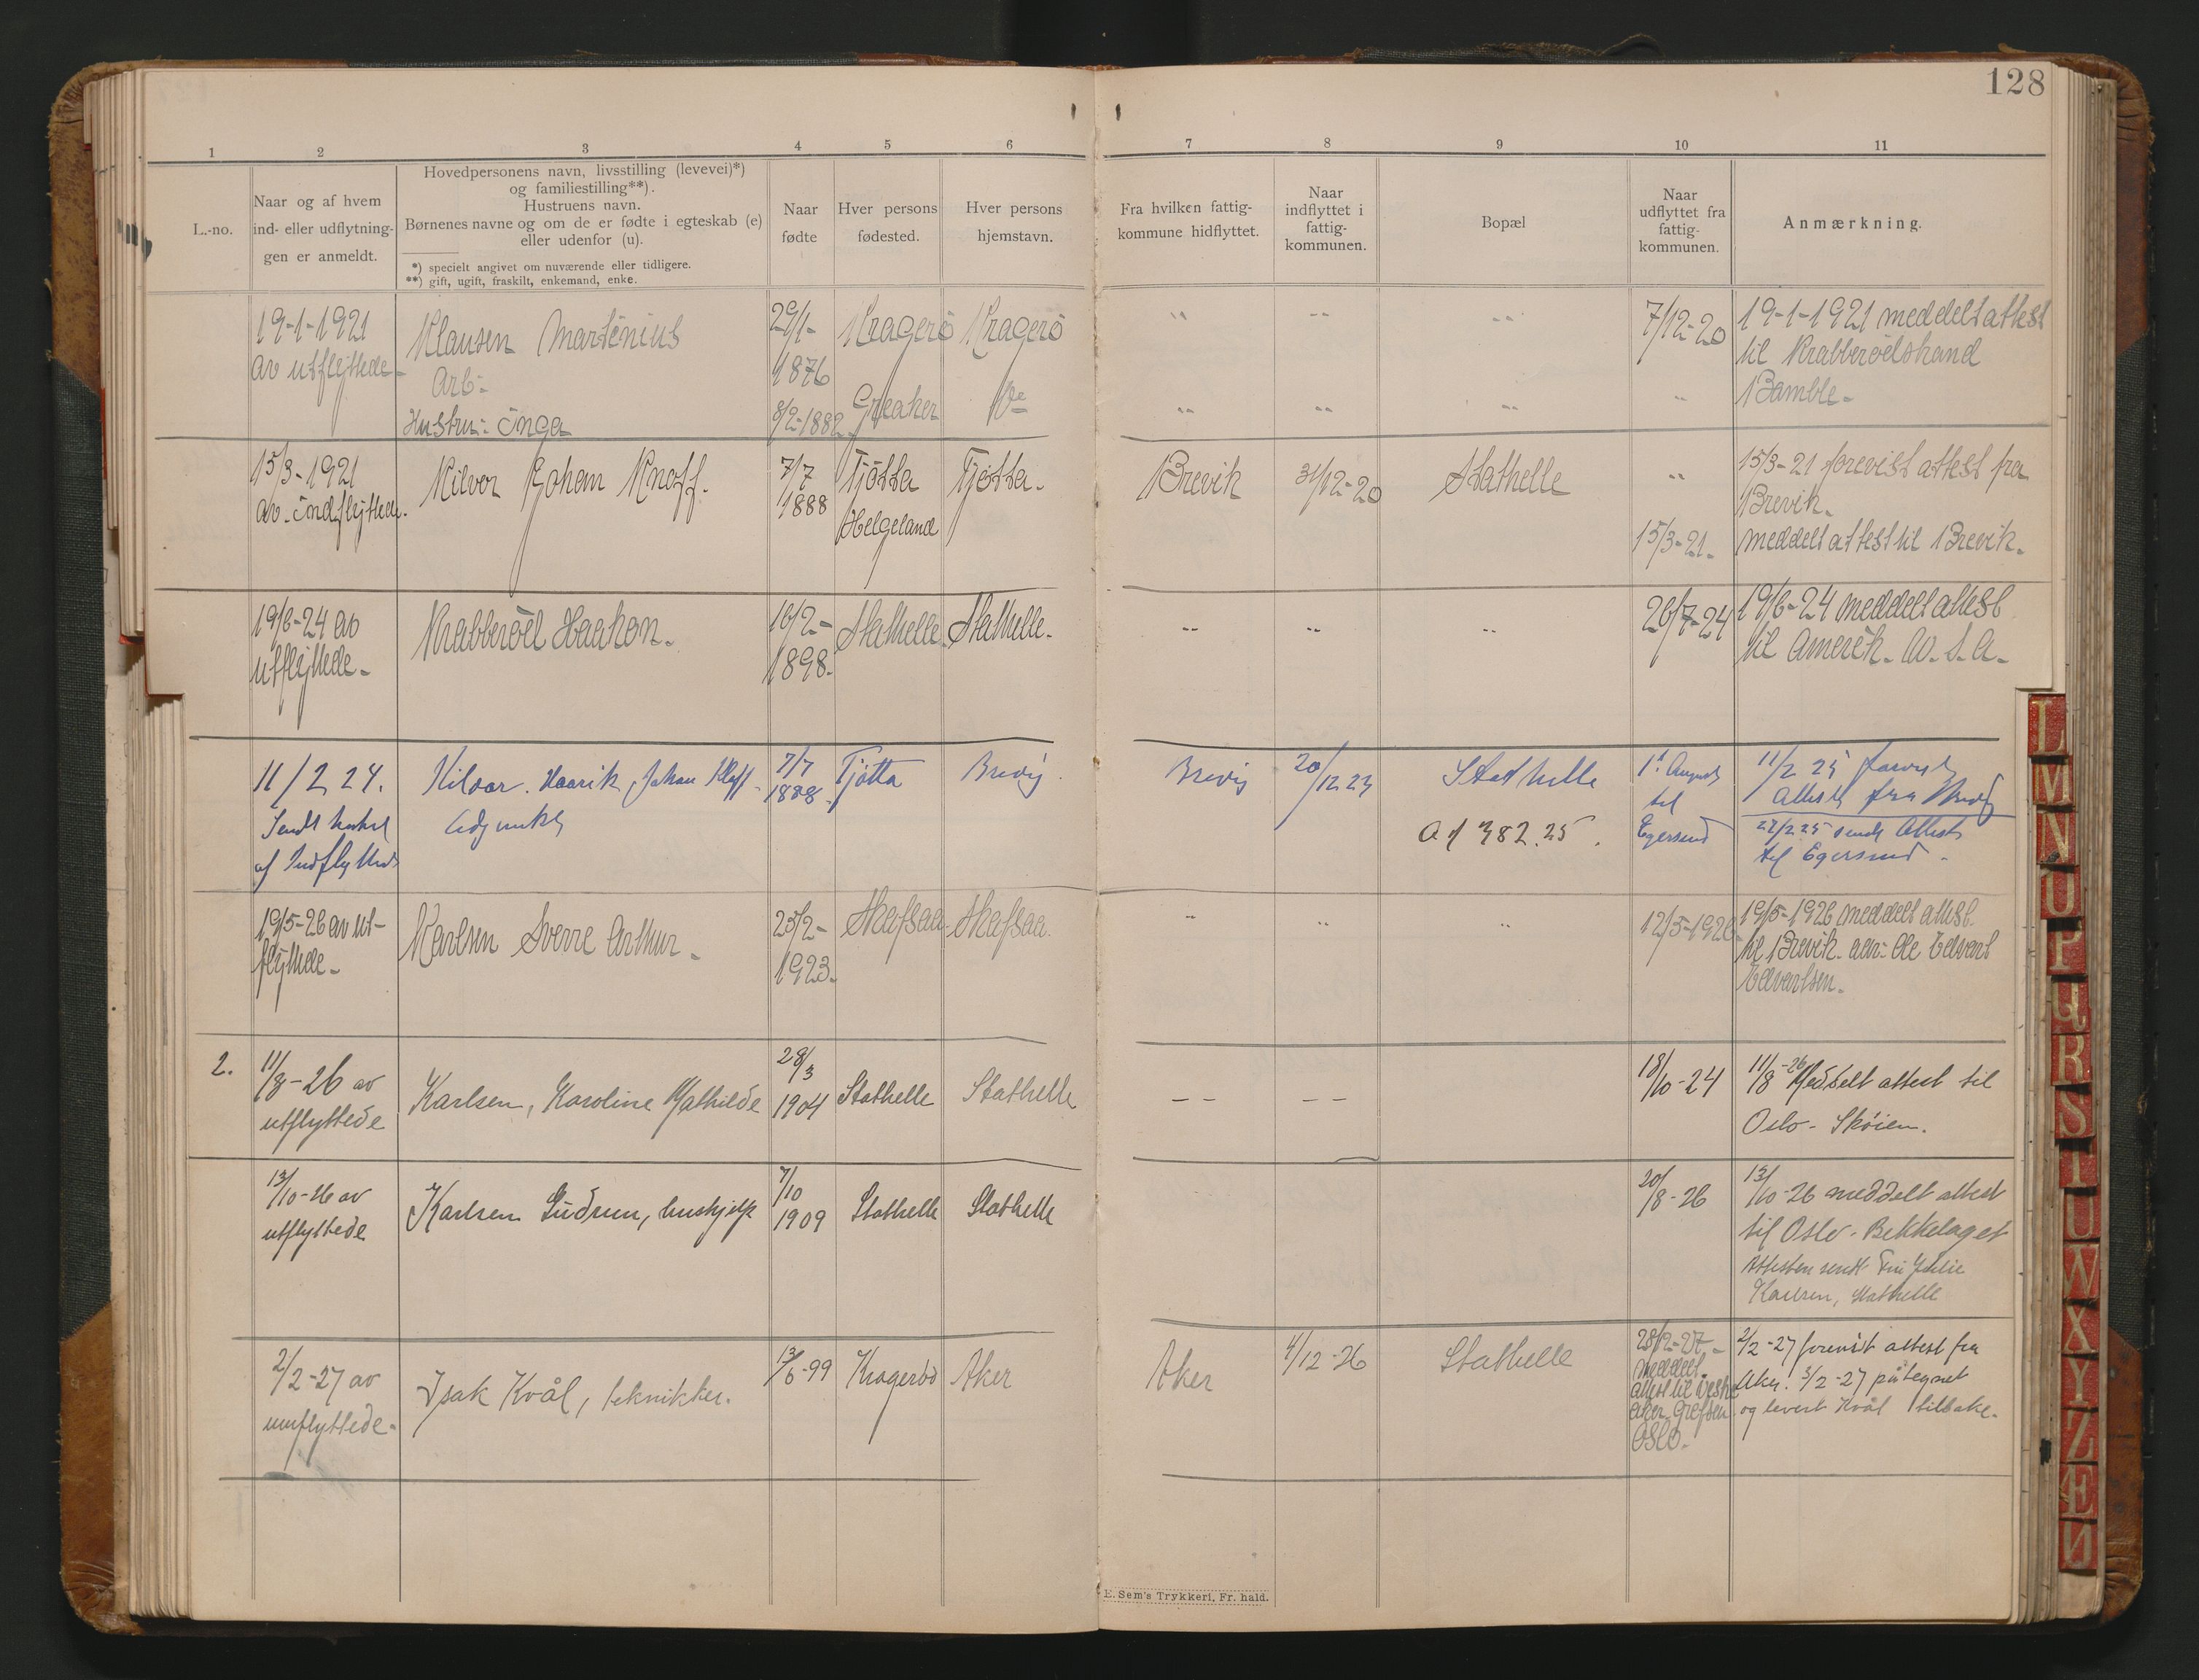 128
1 2 3 4 5 6 7 8 9 10 11
L.-no.
Naar og af hvem
ind- eller udflytnin-
gen er anmeldt.
Hovedpersonens navn, livsstilling (levevei)*)
og familiestilling**).
Hustruens navn.
Børnenes navne og om de er fødte i egteskab (e)
eller udenfor (u).
*) specielt angivet om nuværende eller tidligere.
**) gift, ugift, fraskilt, enkemand, enke.
Naar
fødte
Hver persons
fødested.
Hver persons
hjemstavn.
Fra hvilken fattig-
kommune hidflyttet.
Naar
indflyttet i
fattig-
kommunen.
Bopæl
Naar
udflyttet fra
fattig-
kommunen.
Anmærkning.
19-1-1921
av utflyttede-
Klausen Martinius
Arb-
Hustru: Inga
29/1-
1876
8/2-1882
Kragerö
Greaker
Kragerö
Do
7/12-20
19-1-1921 meddelt attest
til Krabberödstrand
Bamble-
15/3-1921
av-indflyttede.
Kilvor Johan Knoff.
7/7
1888
Tjötta
Helgeland
Tjötta-
Brevik
31/12-20
Stathelle
15/3-21-
15/3-21 forevist attest fra
Brevik-
meddelt attest til Brevik.
19/6-24 av
utflyttede-
Krabberöd Haakon-
16/2-
1898-
Stathelle
Stathelle-
26/7-24
19/6-24 meddelt attest
til Amerik- U.S.A-
11/2 24.
Sendt
af Indflyttede
Kilvar. Haarik, Johan
Adjunkt
7/7
1888-
Tjøtta
Brevig
Brevig
20/12 24
Stathelle
382.25.
1st August
til
Egersund
11/2 25 forevist
Attest fra Brevig
27/2 25 sendt Attest
til Egersund-
19/5-26 av ut-
flyttede-
Karlsen Sverre Arthur-
25/2-
1923-
Skafsaa
Skafsaa.
12/5-1926
19/5-1926 meddelt attest
til Brevik- adr: Ole Edvart
Edvartsen-
2.
11/8-26 av
utflyttede
Karlsen, Karoline Mathilde
28/3
1904
Stathelle
Stathelle
18/10-24
11/8-26 Meddelt attest til
Oslo- Skøien.
13/10-26 av
utflyttede
Karlsen Gudrun, hushjelp
7/10
1909
Stathelle
Stathelle
20/8-26
13/10-26 meddelt attest
til Oslo- Bekkelaget
Attesten sendt Fru Julie
Karlsen, Stathelle
2/2-27 av
innflyttede-
Isak Kvål, tekniker.
13/6-99
Kragerø
Aker
Aker
4/12-26
Stathelle
28/2-27-
meddelt
attest til Vestre
Aker Grefsen
OSLO-
2/2-27 forevist attest fra
Aker. 3/2-27 påtegnet
og levert Kvål tilbake-
E. Sem's Trykkeri, Fr. hald.
L
M
N
U
P
R
S
T
U
W
X
Y
Z
Æ